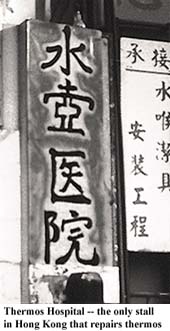 水壺医院
承接
水喉潔具
安裝工程
Thermos Hospital -- the only stall
in Hong Kong that repairs thermos